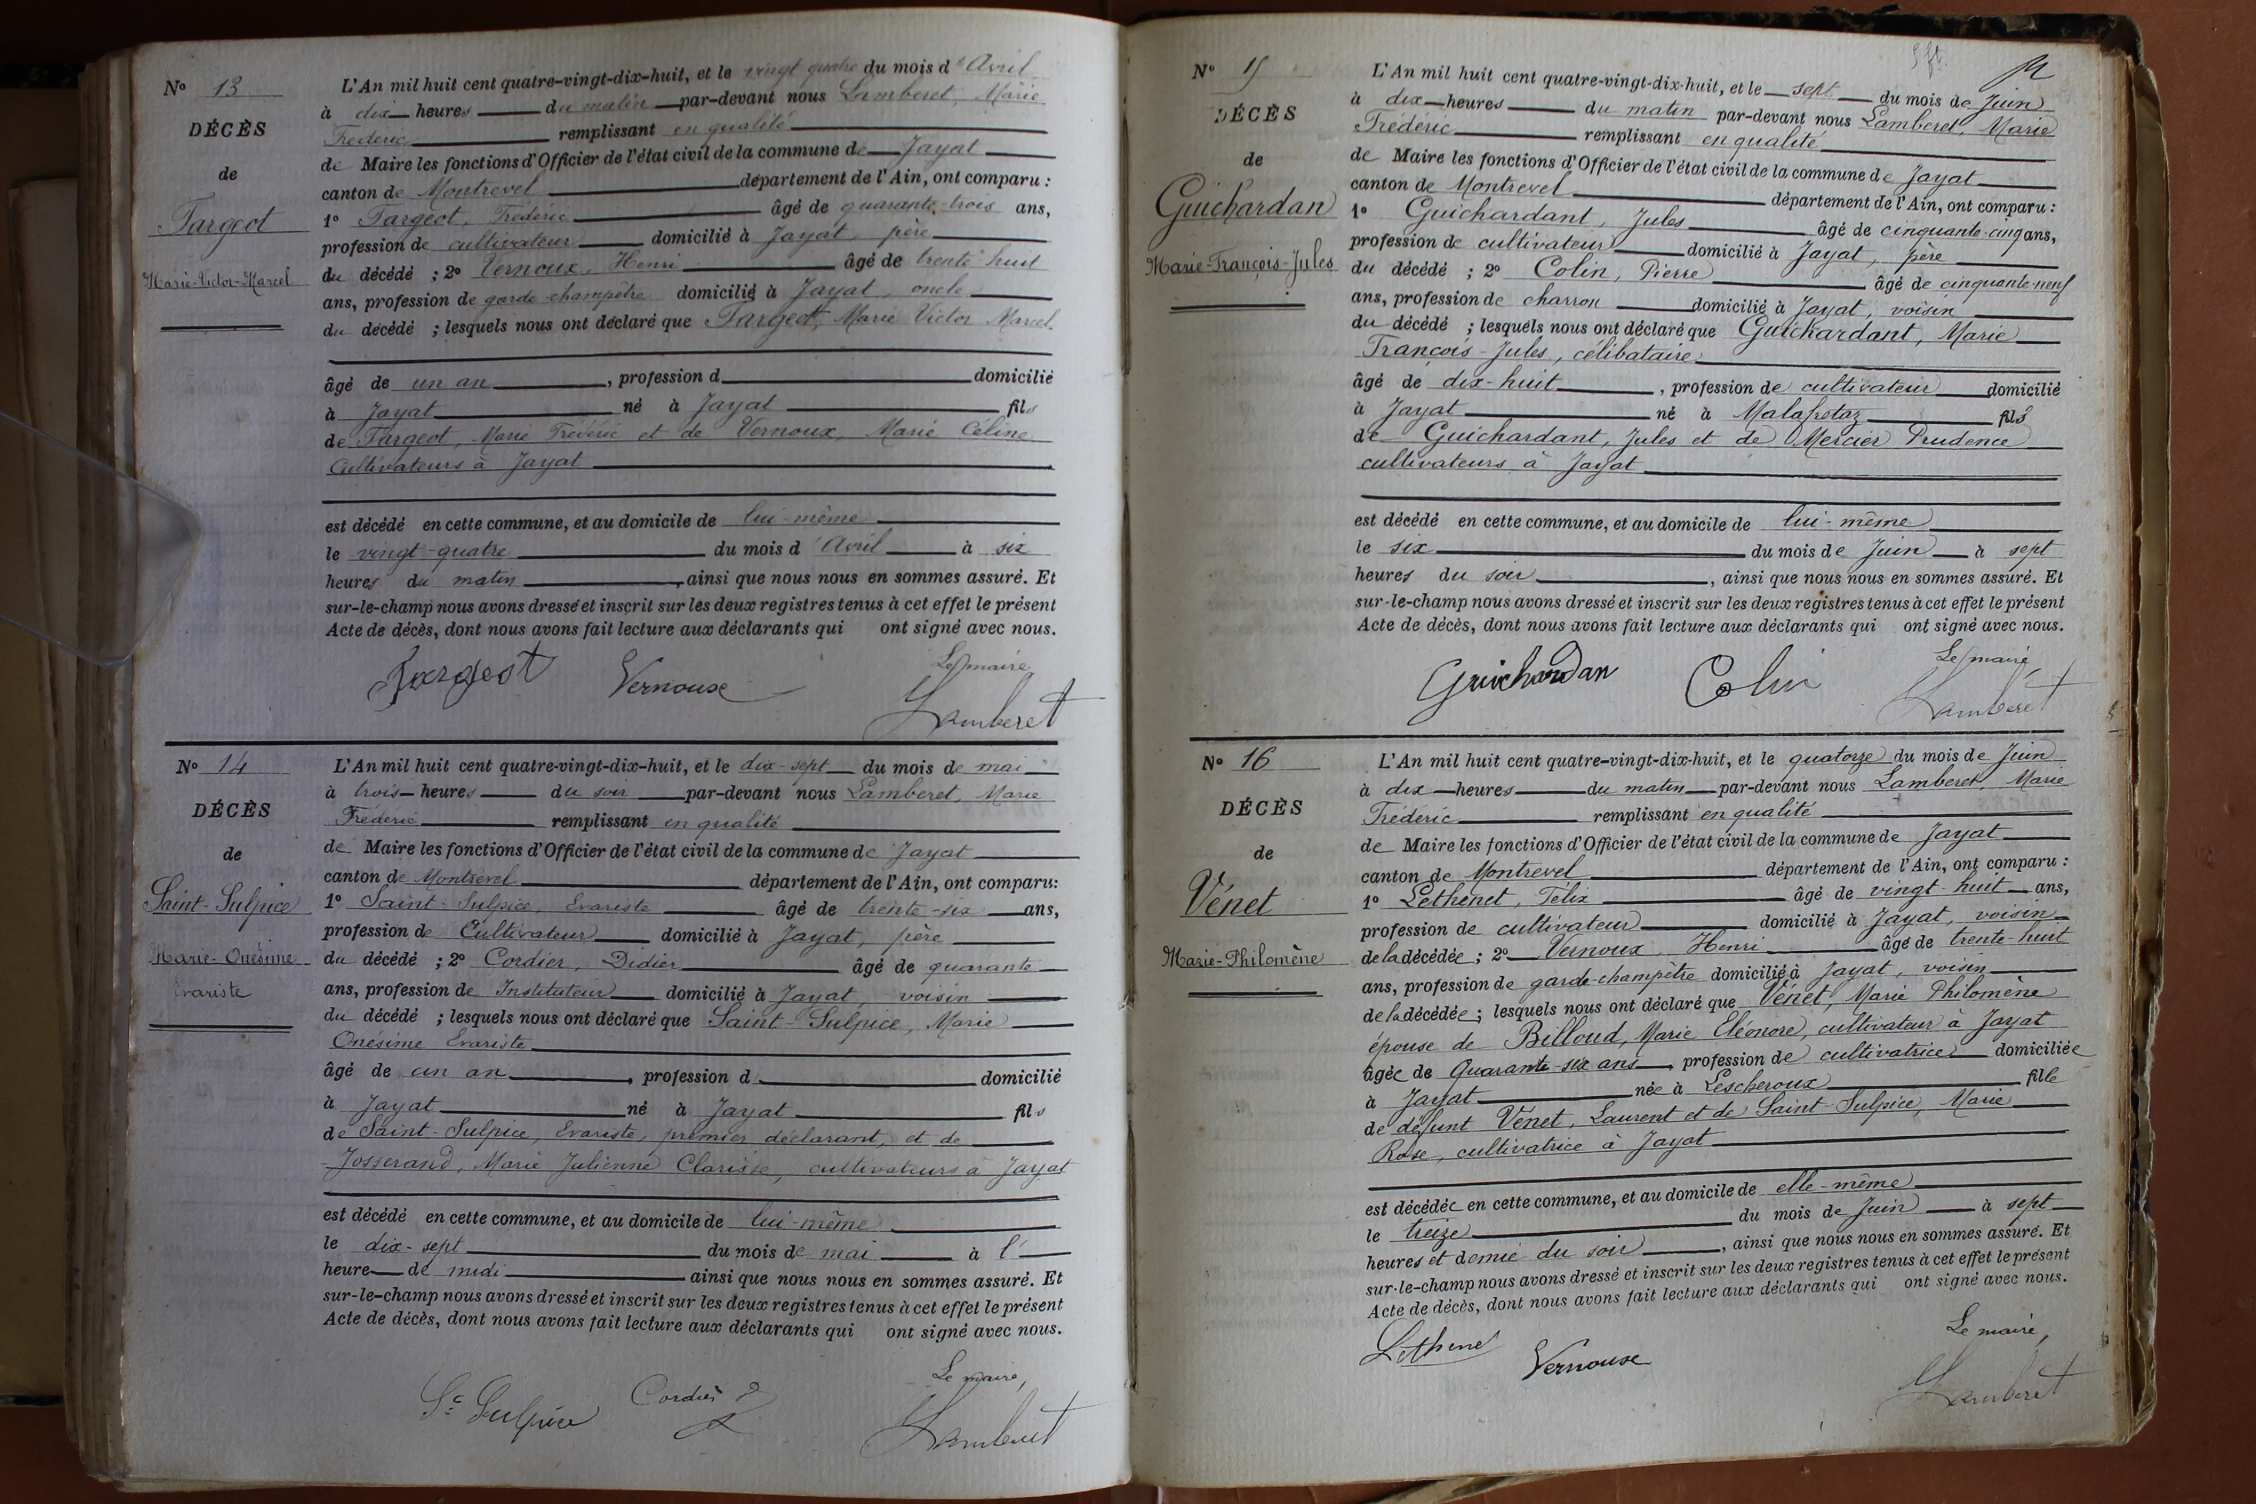 N° 13
DÉCÈS
de
Fargeot
Marie-Victor-Marcel
L'An mil huit cent quatre-vingt-dix-huit, et le vingt quatre du mois d'Avril
à dix heures du matin par-devant nous Lamberet, Marie
Frédéric remplissant en qualité
de Maire les fonctions d'Officier de l'état civil de la commune de Jayat
canton de Montrevel département de l'Ain, ont comparu :
1° Fargeot, Frédéric âgé de quarante-trois ans,
profession de cultivateur domicilié à Jayat, père
du décédé ; 2° Vernoux, Henri âgé de trente huit
ans, profession de garde-champêtre domicilié à Jayat, oncle
du décédé ; lesquels nous ont déclaré que Fargeot, Marie Victor Marcel.
âgé de un an, profession d domicilié
à Jayat né à Jayat fils
de Fargeot, Marie Frédéric et de Vernoux, Marie Céline
Cultivateurs à Jayat
est décédé en cette commune, et au domicile de lui-même
le vingt-quatre du mois d'Avril à six
heures du matin, ainsi que nous nous en sommes assuré. Et
sur-le-champ nous avons dressé et inscrit sur les deux registres tenus à cet effet le présent
Acte de décès, dont nous avons fait lecture aux déclarants qui ont signé avec nous.
Le maire
Fargeot Vernoux Lamberet
N° 14
DÉCÈS
de
Saint-Sulpice
Marie-Onésime
Evariste
L'An mil huit cent quatre-vingt-dix-huit, et le dix-sept du mois de mai
à trois heures du soir par-devant nous Lamberet, Marie
Frédéric remplissant en qualité
de Maire les fonctions d'Officier de l'état civil de la commune de Jayat
canton de Montrevel département de l'Ain, ont comparu :
1° Saint-Sulpice, Evariste âgé de trente-six ans,
profession de Cultivateur domicilié à Jayat, père
du décédé ; 2° Cordier, Didier âgé de quarante
ans, profession de Instituteur domicilié à Jayat, voisin
du décédé ; lesquels nous ont déclaré que Saint-Sulpice, Marie
Onésime Evariste
âgé de un an, profession d domicilié
à Jayat né à Jayat fils
de Saint-Sulpice, Evariste, premier déclarant, et de
Josserand, Marie Julienne Clarisse, cultivateurs à Jayat
est décédé en cette commune, et au domicile de lui-même
le dix-sept du mois de mai à l'
heure de midi ainsi que nous nous en sommes assuré. Et
sur-le-champ nous avons dressé et inscrit sur les deux registres tenus à cet effet le présent
Acte de décès, dont nous avons fait lecture aux déclarants qui ont signé avec nous.
Le maire,
St Sulpice Cordier D Lamberet
N° 15
DÉCÈS
de
Guichardan
Marie-François-Jules
L'An mil huit cent quatre-vingt-dix-huit, et le sept du mois de Juin
à dix heures du matin par-devant nous Lamberet, Marie
Frédéric remplissant en qualité
de Maire les fonctions d'Officier de l'état civil de la commune de Jayat
canton de Montrevel département de l'Ain, ont comparu :
1° Guichardant, Jules âgé de cinquante-cinq ans,
profession de cultivateur domicilié à Jayat, père
du décédé ; 2° Colin, Pierre âgé de cinquante-neuf
ans, profession de charron domicilié à Jayat, voisin
du décédé ; lesquels nous ont déclaré que Guichardant, Marie
François-Jules, célibataire
âgé de dix-huit, profession de cultivateur domicilié
à Jayat né à Malafretaz fils
de Guichardant, Jules et de Mercier Prudence
cultivateurs à Jayat
est décédé en cette commune, et au domicile de lui-même
le six du mois de Juin à sept
heures du soir, ainsi que nous nous en sommes assuré. Et
sur-le-champ nous avons dressé et inscrit sur les deux registres tenus à cet effet le présent
Acte de décès, dont nous avons fait lecture aux déclarants qui ont signé avec nous.
Le maire
Guichardan Colin Lamberet
N° 16
DÉCÈS
de
Vénet
Marie-Philomène
L'An mil huit cent quatre-vingt-dix-huit, et le quatorze du mois de Juin
à dix heures du matin par-devant nous Lamberet, Marie
Frédéric remplissant en qualité
de Maire les fonctions d'Officier de l'état civil de la commune de Jayat
canton de Montrevel département de l'Ain, ont comparu :
1° Lethenet, Félix âgé de vingt-huit ans,
profession de cultivateur domicilié à Jayat, voisin
de la décédée ; 2° Vernoux Henri âgé de trente-huit
ans, profession de garde-champêtre domicilié à Jayat, voisin
de la décédée ; lesquels nous ont déclaré que Vénet, Marie Philomène
épouse de Billoud, Marie Eléonore, cultivateur à Jayat
âgée de Quarante-six ans, profession de cultivatrice domiciliée
à Jayat née à Lescheroux fille
de défunt Vénet, Laurent et de Saint-Sulpice, Marie
Rose, cultivatrice à Jayat
est décédée en cette commune, et au domicile de elle-même
le treize du mois de Juin à sept
heures et demie du soir, ainsi que nous nous en sommes assuré. Et
sur-le-champ nous avons dressé et inscrit sur les deux registres tenus à cet effet le présent
Acte de décès, dont nous avons fait lecture aux déclarants qui ont signé avec nous.
Le maire,
Lethenet Vernoux Lamberet